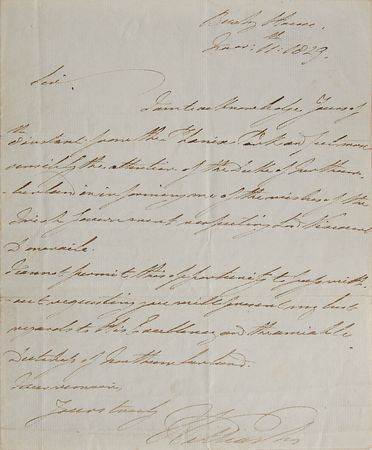 Bushy House.
Novr. 11th. 1829.
Sir,
I am to acknowledge Yours of
the instant from the Phoenix Park and feel most
sensibly the attention of the Duke of Northum-
berland in informing me of the wishes of the
Irish Government respecting Lord
I cannot permit this opportunity to pass with-
out requesting you will present my best
regards to His Excellency and the amiable
Dutchess of Northumberland.
I ever remain
Yours truly
William